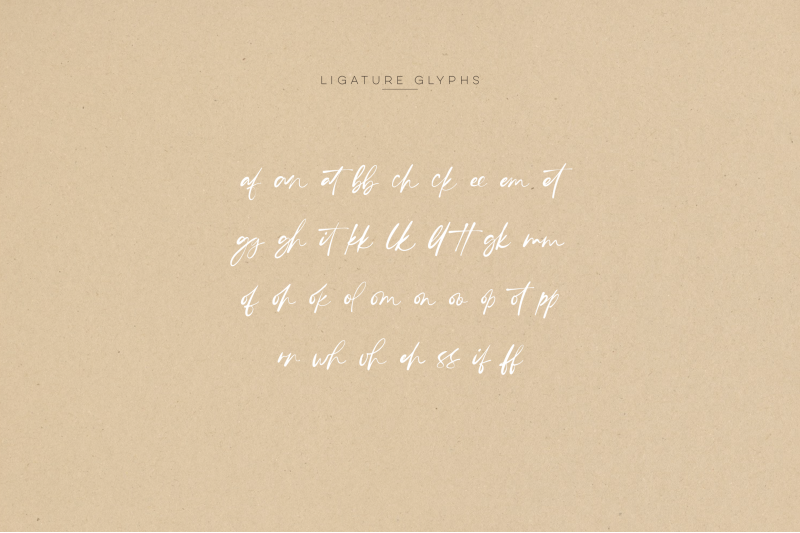 LIGATURE GLYPHS
af an at bb ch ck ee em et
gg gh it kk lk ll tt gk ram
of oh ok ol om on oo op ot pp
rr wh vh eh ss if ff